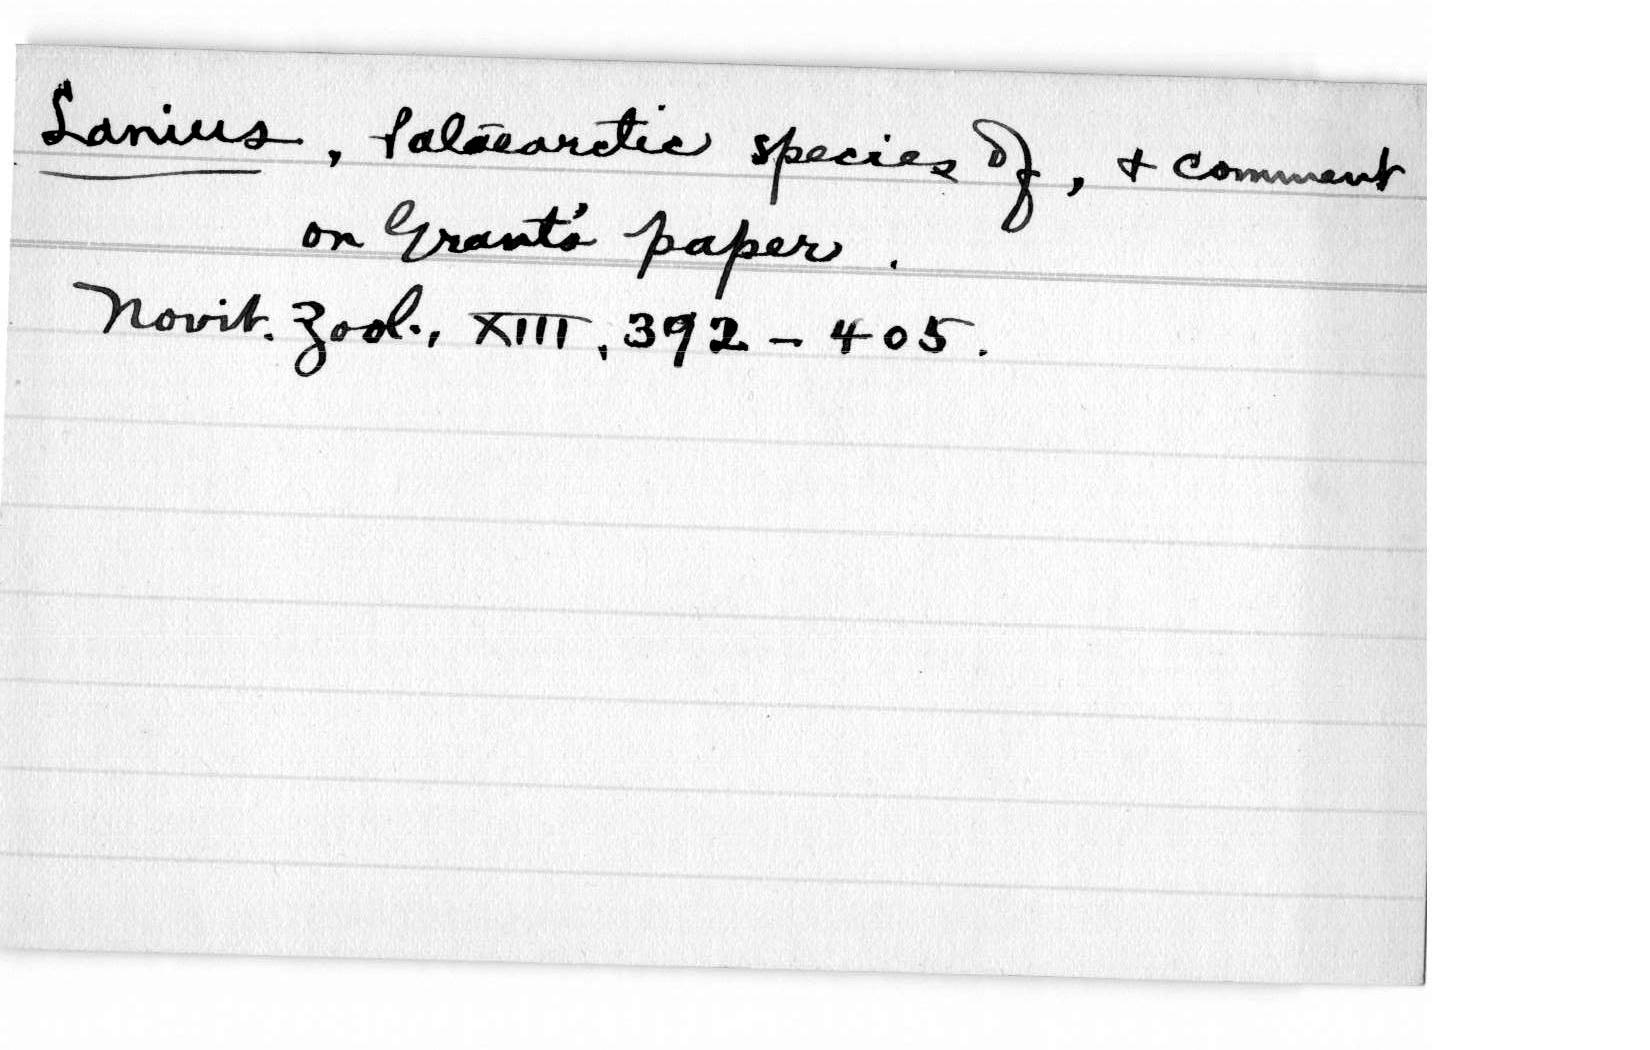 Lanius, Palaearctic species of, + comment
on Grant's paper.
Novit. Zool., XIII, 392-405.